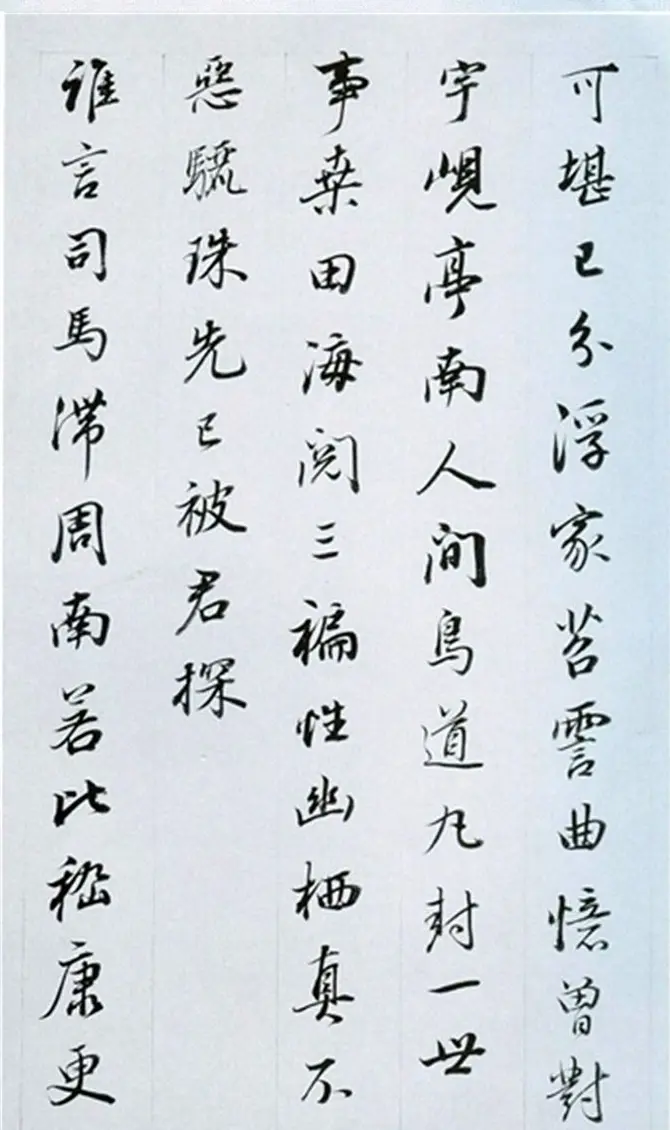 可堪已分浮家苕霅曲憶曾對
宇峴亭南人間鳥道丸封一世
事桒田海閱三褊性幽栖真不
惡驪珠先已被君探
誰言司馬滯周南若比嵇康更